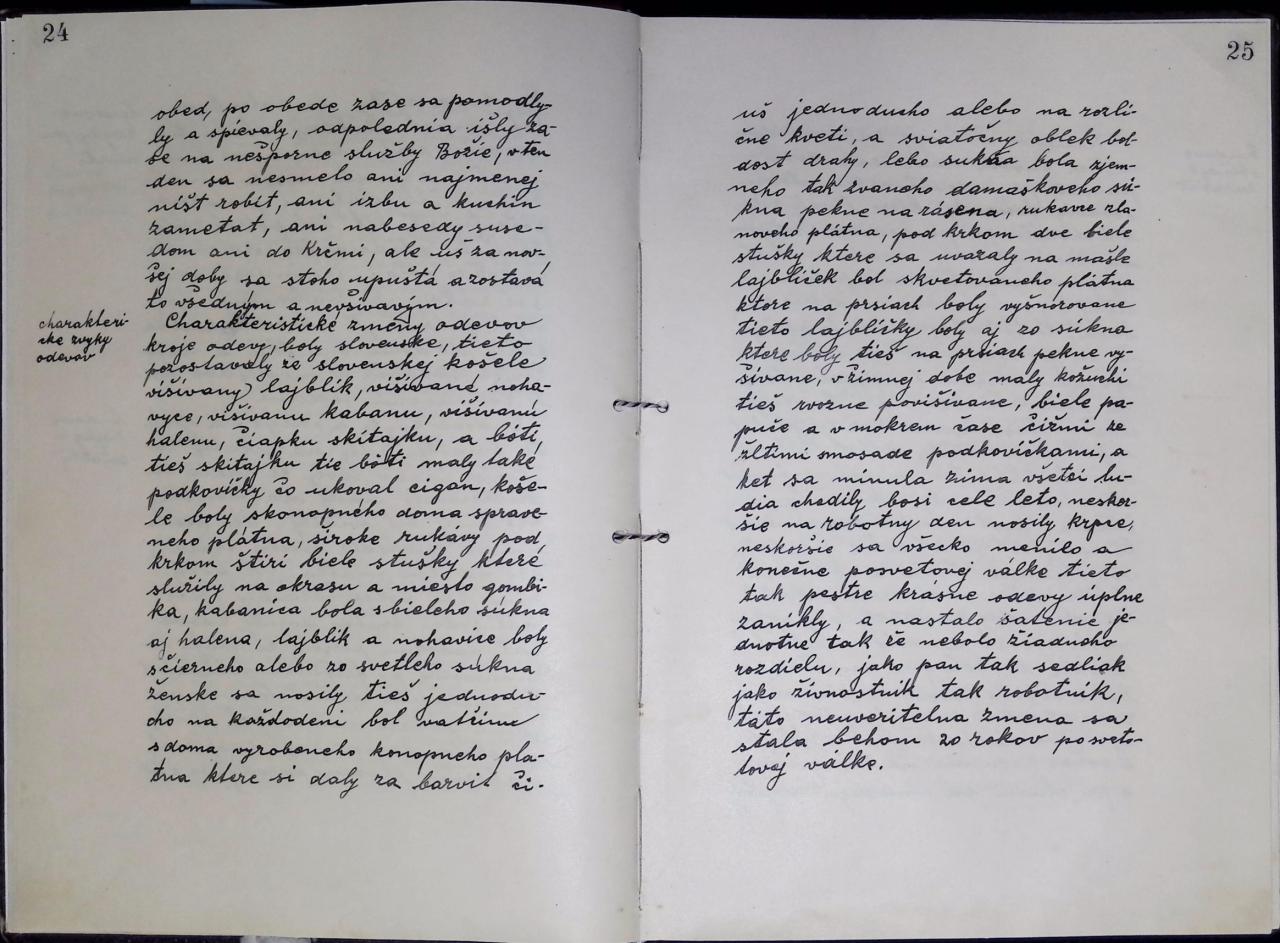 24
obed, po obede zase sa pomodly-
ly a spievaly, odpoledňia išly za-
se na nešporne služby Božie, v ten
den sa nesmelo ani najmenej
ništ robit, ani izbu a kuchin
zametat, ani nabesedy suse-
dom ani do Krčmi, ale uš za nov-
šej doby sa stoho upuštá a zostavá
to všedným a nevšivavým.
charakteri-
cke zvyky
odevov
Charakteristické zmeny odevov
kroje odevy, boly slovenske, tieto
pozostavaly ze slovenskej košele
višivany lajblik, višivané noha-
vyce, višivanu kabanu, višivanú
halenu, čiapku skitajku, a bóti,
tieš skitajku tie bôti maly také
podkovičky čo ukoval cigan, koše-
le boly skonopného doma sprave-
neho plátna, široke rukávy pod
krkom štiri biele stušky které
služily na okrasu a miesto gombi-
ka, kabanica bola sbieleho súkna
aj halena, lajblik a nohavice boly
sčierneho alebo zo svetleho súkna
ženske sa nosily, tieš jednodu-
cho na každodeni bol vatšinu
sdoma vyrobeneho konopneho pla-
tna ktere si daly za barvit či-
25
uš jednoducho alebo na rozli-
čne kveti, a sviatočny oblek bol
dost drahy, lebo sukňa bola zjem-
neho tak zvaneho damaškoveho sú-
kna pekne na zásena, rukavce zla-
noveho plátna, pod krkom dve biele
stušky ktere sa uvazaly na mašle
lajbliček bol skvetovaneho plátna
ktore na prsiach boly vyšnorovane
tieto lajbličky boly aj zo súkna
ktere boly tieš na prsiach pekne vy-
šivane, v zimnej dobe maly kožuchi
tieš rvozne povišivane, biele pa-
puče a v mokrem čase čižmi ze
žltimi mosade podkovičkami, a
ket sa minula zima všetci lu-
dia chodily bosi cele leto, neskor-
šie na robotny den nosily krpce,
neskoršie sa všecko menilo a
konečne posvetovej válke tieto
tak pestre krásne odevy úplne
zanikly, a nastalo šatenie je-
dnotne tak že nebolo žiadneho
rozdielu, jako pan tak sedliak
jako živnostnik tak robotnik,
táto neuveritelna zmena sa
stala behom 20 rokov po sveto-
tovej válke.